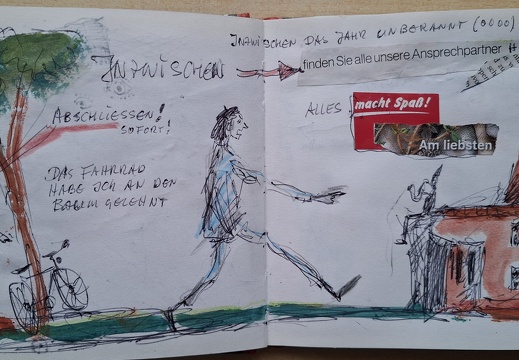 INZWISCHEN DAS JAHR UNBEKANNT (0000)
INZWISCHEN
finden Sie alle unsere Ansprechpartner
ABSCHLIESSEN!
SOFORT!
ALLES
macht Spaß!
Am liebsten
DAS FAHRRAD
HABE ICH AN DEN
BAUM GELEHNT